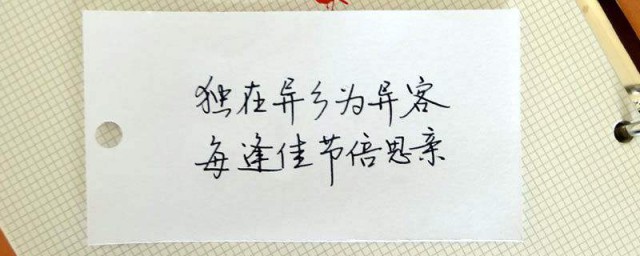 独在异乡为异客
每逢佳节倍思亲